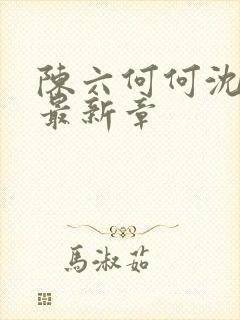 陳六何何沈
最新章
馬淑茹